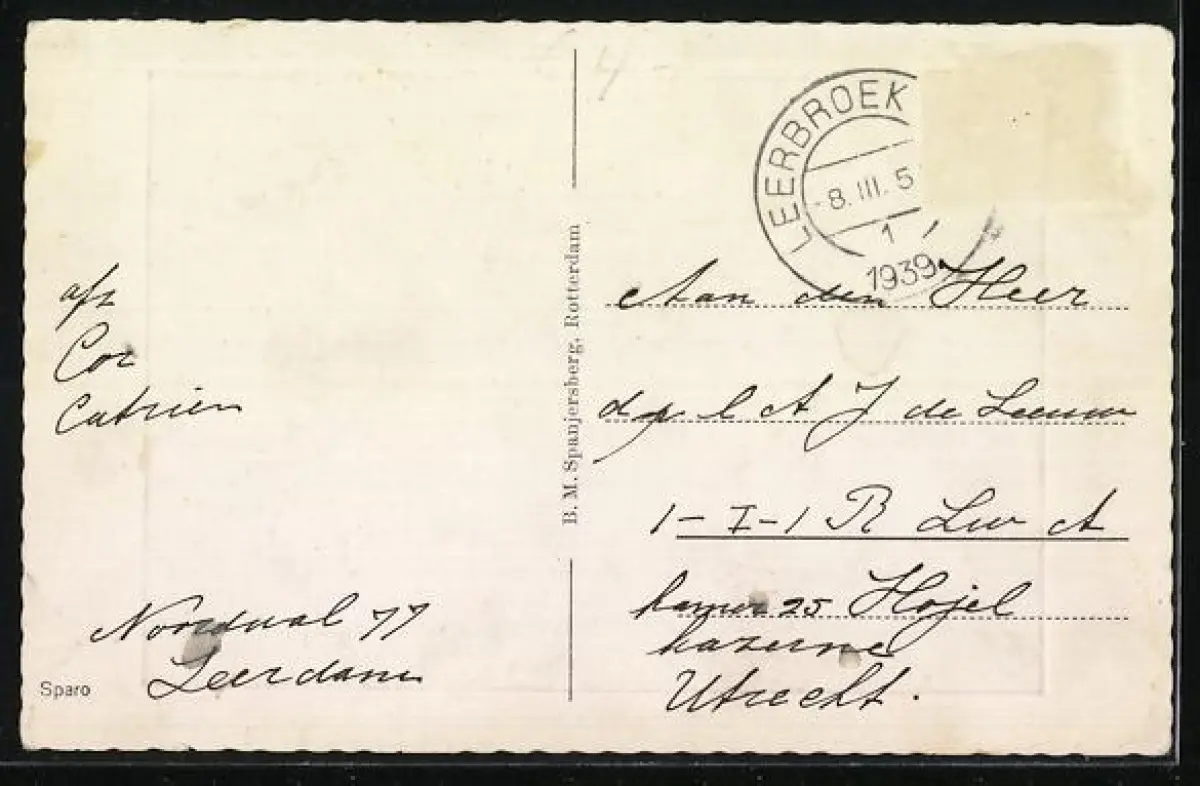 LEERBROEK
8.III.5
1
1939
afz
Cor
Catrien
Noordwal 77
Leerdam
Sparo
B. M. Spanjersberg, Rotterdam
Aan den Heer
dpl A J de Leeuw
1-I-1 R Luv A
kamer 25 Hojel
kazerne
Utrecht.